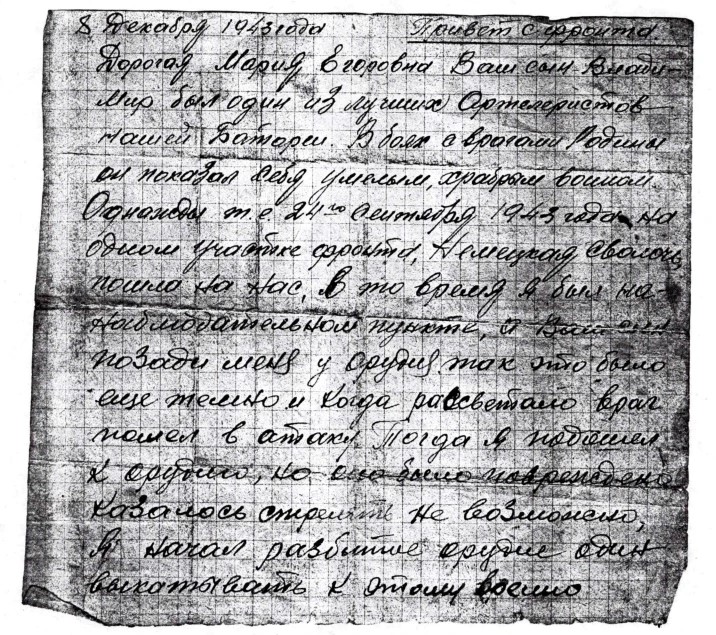 8 Декабря 1943 года Привет с фронта
Дорогая Мария Егоровна Ваш сын Влади-
мир был один из лучших Артелеристов
нашей Батореи. В боях с врагами Родины
он показал себя умелым, храбрым воином.
Однажды т.е. 24го Сентября 1943 года на
одном участке фронта, Немецкая Сволочь
пошла на нас, в то время я был на-
наблюдательном пункте, а Ваш сын
позади меня у орудия так это было
еще темно и когда рассветало враг
пошел в атаку. Тогда я подошел
к орудию, но оно было повреждено
казалось стрелять не возможно,
Я начал разбитое орудие один
выкатывать к этому время